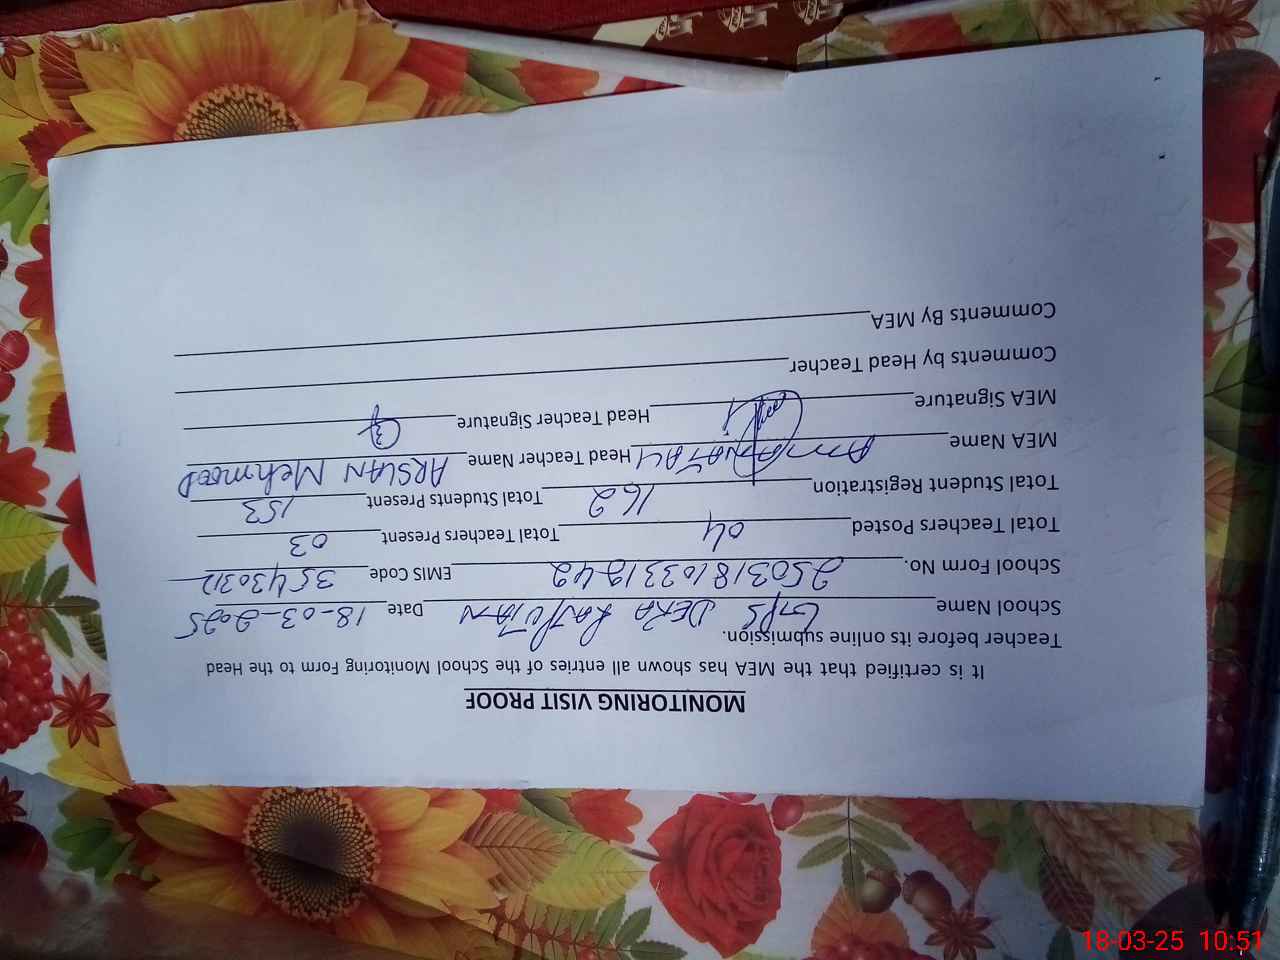 MONITORING VISIT PROOF
It is certified that the MEA has shown all entries of the School Monitoring Form to the Head
Teacher before its online submission.
School Name GPS DERA RAJPUTAN Date 18-03-2025
School Form No. 25031810331242 EMIS Code 35430312
Total Teachers Posted 04 Total Teachers Present 03
Total Student Registration 162 Total Students Present 153
MEA Name Head Teacher Name ARSLAN Mehmood
MEA Signature Head Teacher Signature
Comments by Head Teacher
Comments By MEA
18-03-25 10:51